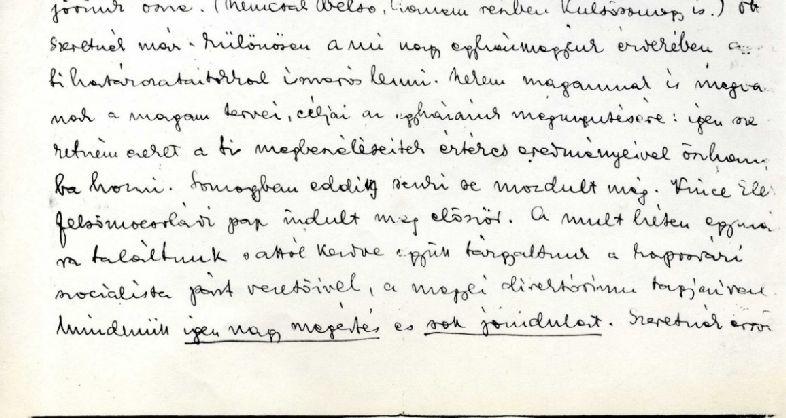 jövünk össze. (Nemcsak Belső, hanem részben Külsősomogy is.)
szeretnék már. Különösen a mi nagy egyházmegyénk érdekében a
ti határozataitokkal ismerős lenni. Nekem magamnak is megva
nak a magam tervei, céljai az egyházaink megnyugtatására: igen sze
retném ezeket a ti megbeszéléseitek értékes eredményeivel össhang
ba hozni. Somogyban eddig senki se mozdult meg. Vince Elé
felsőmocsoládi pap indult meg először. A mult héten egymá
ra találtunk s attól kezdve együtt tárgyaltunk a kaposvári
szocialista párt vezetőivel, a megyei direktórium tagjaival.
Mindenütt igen nagy megértés és sok jóindulat. Szeretnék erről